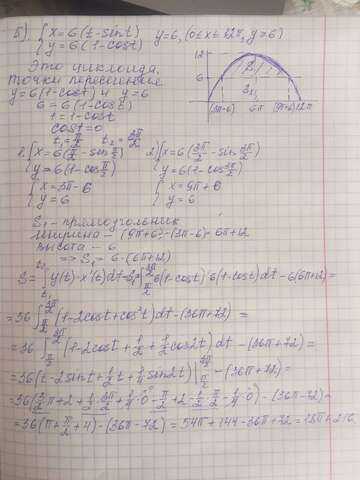 5) { x=6(t-sint)
y=6(1-cost)
y=6, (0≤x≤12π, y≥6)
12
6
S
S₁
3π-6 6π 9π+6 12π
Это циклоида.
Точки пересечения
y=6(1-cost) и y=6
6=6(1-cost)
1=1-cost
cost=0
t₁=π/2 t₂=3π/2
1. { x=6(π/2-sin π/2)
y=6(1-cos π/2)
{ x=3π-6
y=6
2. { x=6(3π/2-sin 3π/2)
y=6(1-cos 3π/2)
{ x=9π+6
y=6
S₁ - прямоугольник
ширина - (9π+6)-(3π-6)=6π+12
высота - 6
=> S₁=6·(6π+12)
S=∫ y(t)·x'(t)dt-S₁=∫ 6(1-cost)·6(1-cost)dt-6(6π+12)=
=36∫(1-2cost+cos²t)dt-(36π+72)=
=36∫(1-2cost+1/2+1/2cos2t)dt-(36π+72)=
=36(t-2sint+1/2t+1/4sin2t)|-(36π+72)=
=36(3/2π+2+1/2·3π/2+1/4·0-π/2+2-1/2·π/2-1/4·0)-(36π-72)=
=36(π+π/2+4)-(36π-72)=54π+144-36π+72=18π+216